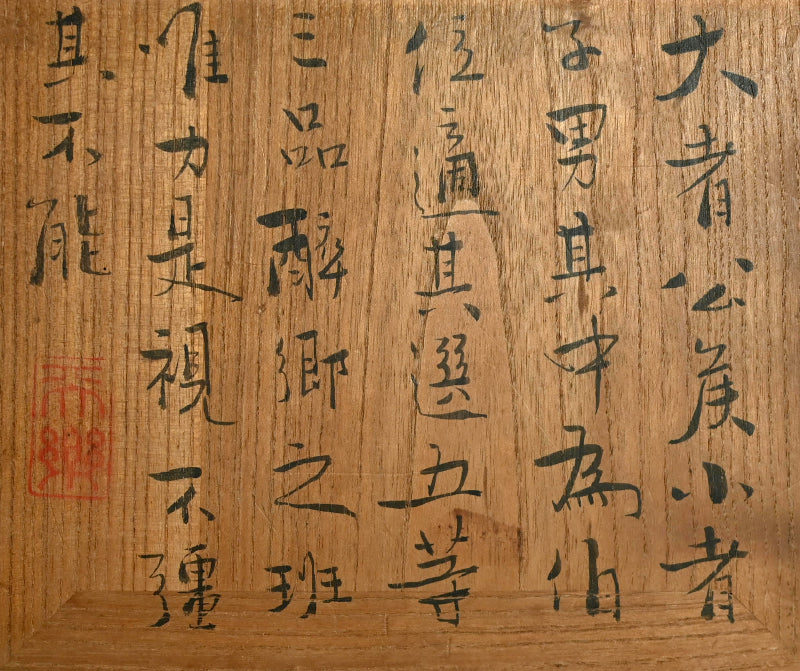 大者公矦小者
子男其中為伯
位適其選五等
三品醉鄉之班
唯力是視不彊
其不能